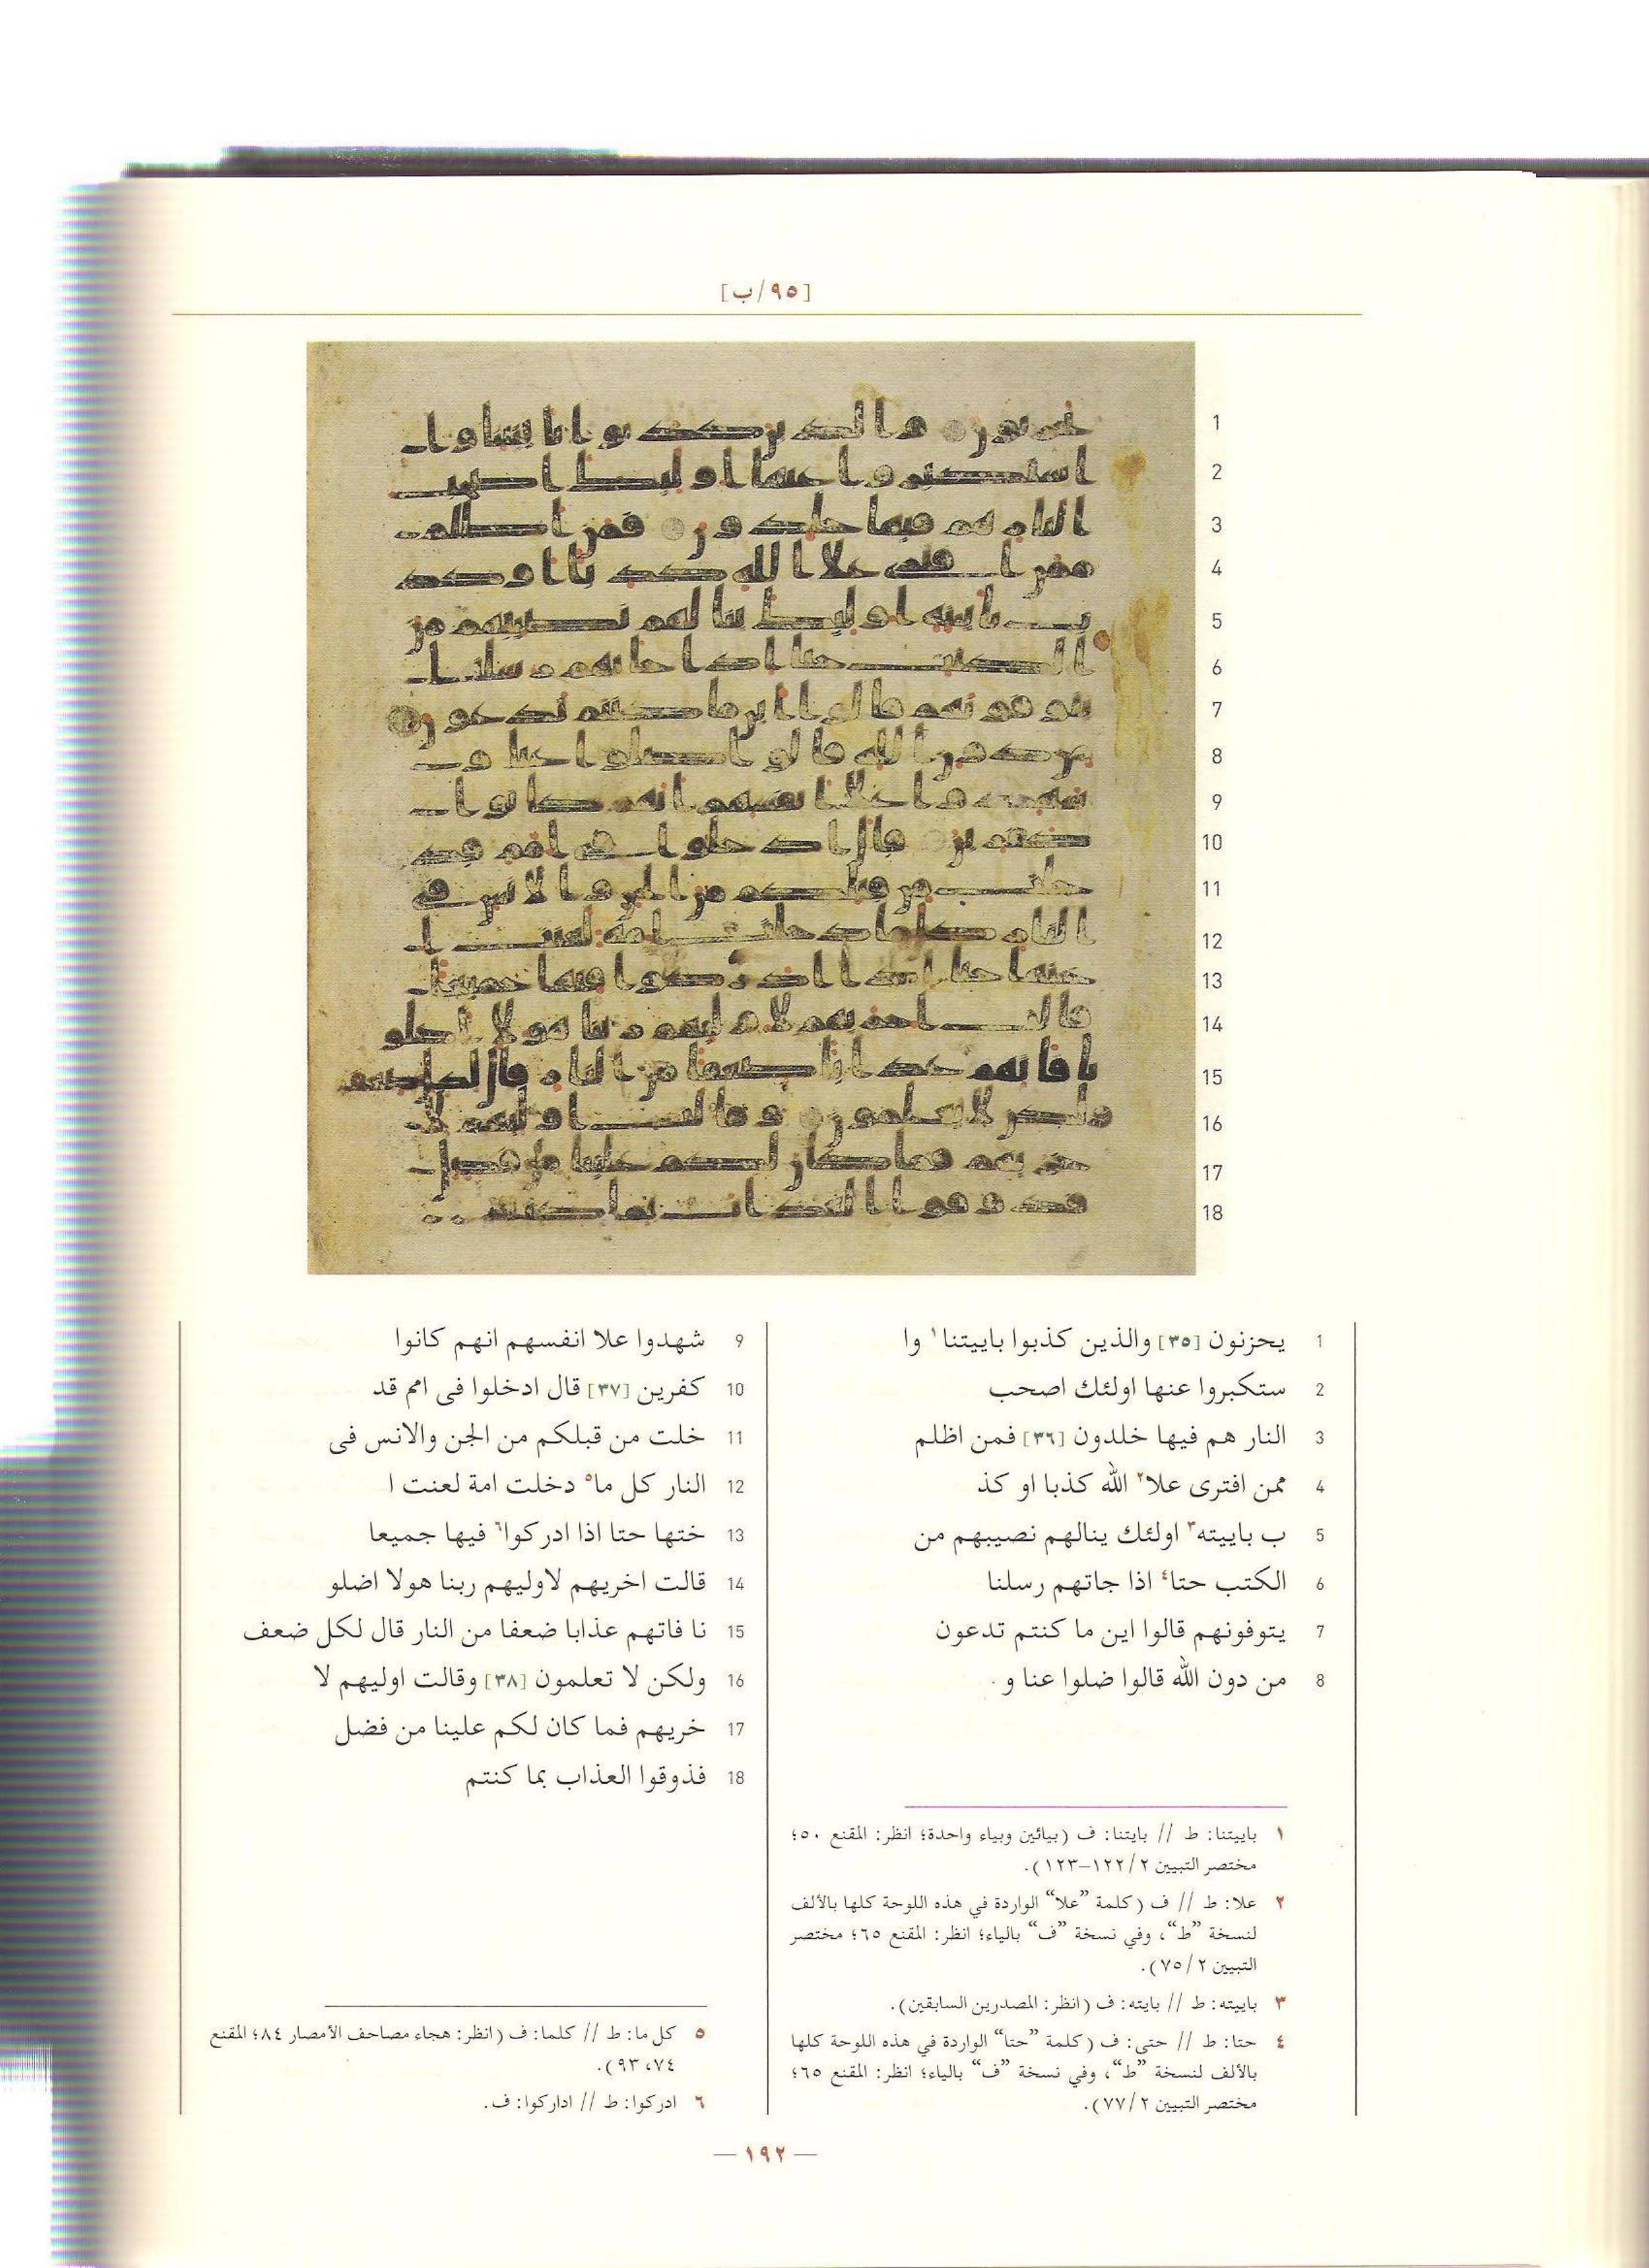 [٩٥/ب]
1 يحزنون [٣٥] والذين كذبوا باييتنا١ وا
2 ستكبروا عنها اولئك اصحب
3 النار هم فيها خلدون [٣٦] فمن اظلم
4 ممن افترى علا٢ الله كذبا او كذ
5 ب باييته٣ اولئك ينالهم نصيبهم من
6 الكتب حتا٤ اذا جاتهم رسلنا
7 يتوفونهم قالوا اين ما كنتم تدعون
8 من دون الله قالوا ضلوا عنا و
9 شهدوا علا انفسهم انهم كانوا
10 كفرين [٣٧] قال ادخلوا فى امم قد
11 خلت من قبلكم من الجن والانس فى
12 النار كل ما٥ دخلت امة لعنت ا
13 ختها حتا اذا ادركوا٦ فيها جميعا
14 قالت اخريهم لاوليهم ربنا هولا اضلو
15 نا فاتهم عذابا ضعفا من النار قال لكل ضعف
16 ولكن لا تعلمون [٣٨] وقالت اوليهم لا
17 خريهم فما كان لكم علينا من فضل
18 فذوقوا العذاب بما كنتم
١ باييتنا: ط // بايتنا: ف (بيائين وبياء واحدة؛ انظر: المقنع ٥٠؛
مختصر التبيين ٢/ ١٢٢–١٢٣).
٢ علا: ط // ف (كلمة ”علا“ الواردة في هذه اللوحة كلها بالألف
لنسخة ”ط“، وفي نسخة ”ف“ بالياء؛ انظر: المقنع ٦٥؛ مختصر
التبيين ٢/ ٧٥).
٣ باييته: ط // بايته: ف (انظر: المصدرين السابقين).
٤ حتا: ط // حتى: ف (كلمة ”حتا“ الواردة في هذه اللوحة كلها
بالألف لنسخة ”ط“، وفي نسخة ”ف“ بالياء؛ انظر: المقنع ٦٥؛
مختصر التبيين ٢/ ٧٧).
٥ كل ما: ط // كلما: ف (انظر: هجاء مصاحف الأمصار ٨٤؛ المقنع
٧٤، ٩٣).
٦ ادركوا: ط // اداركوا: ف.
— ١٩٢ —